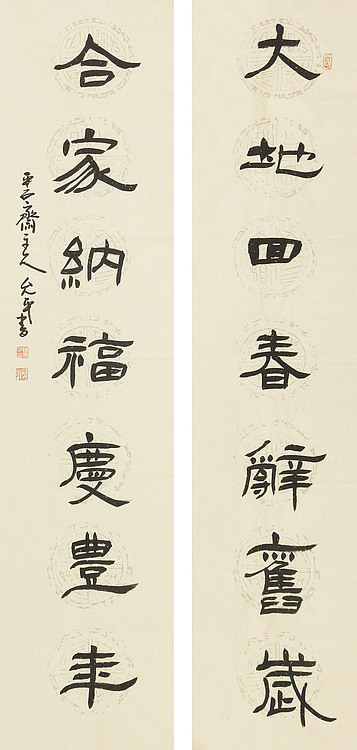 大地回春辭舊歲
合家納福慶豐年
齋主人允平書